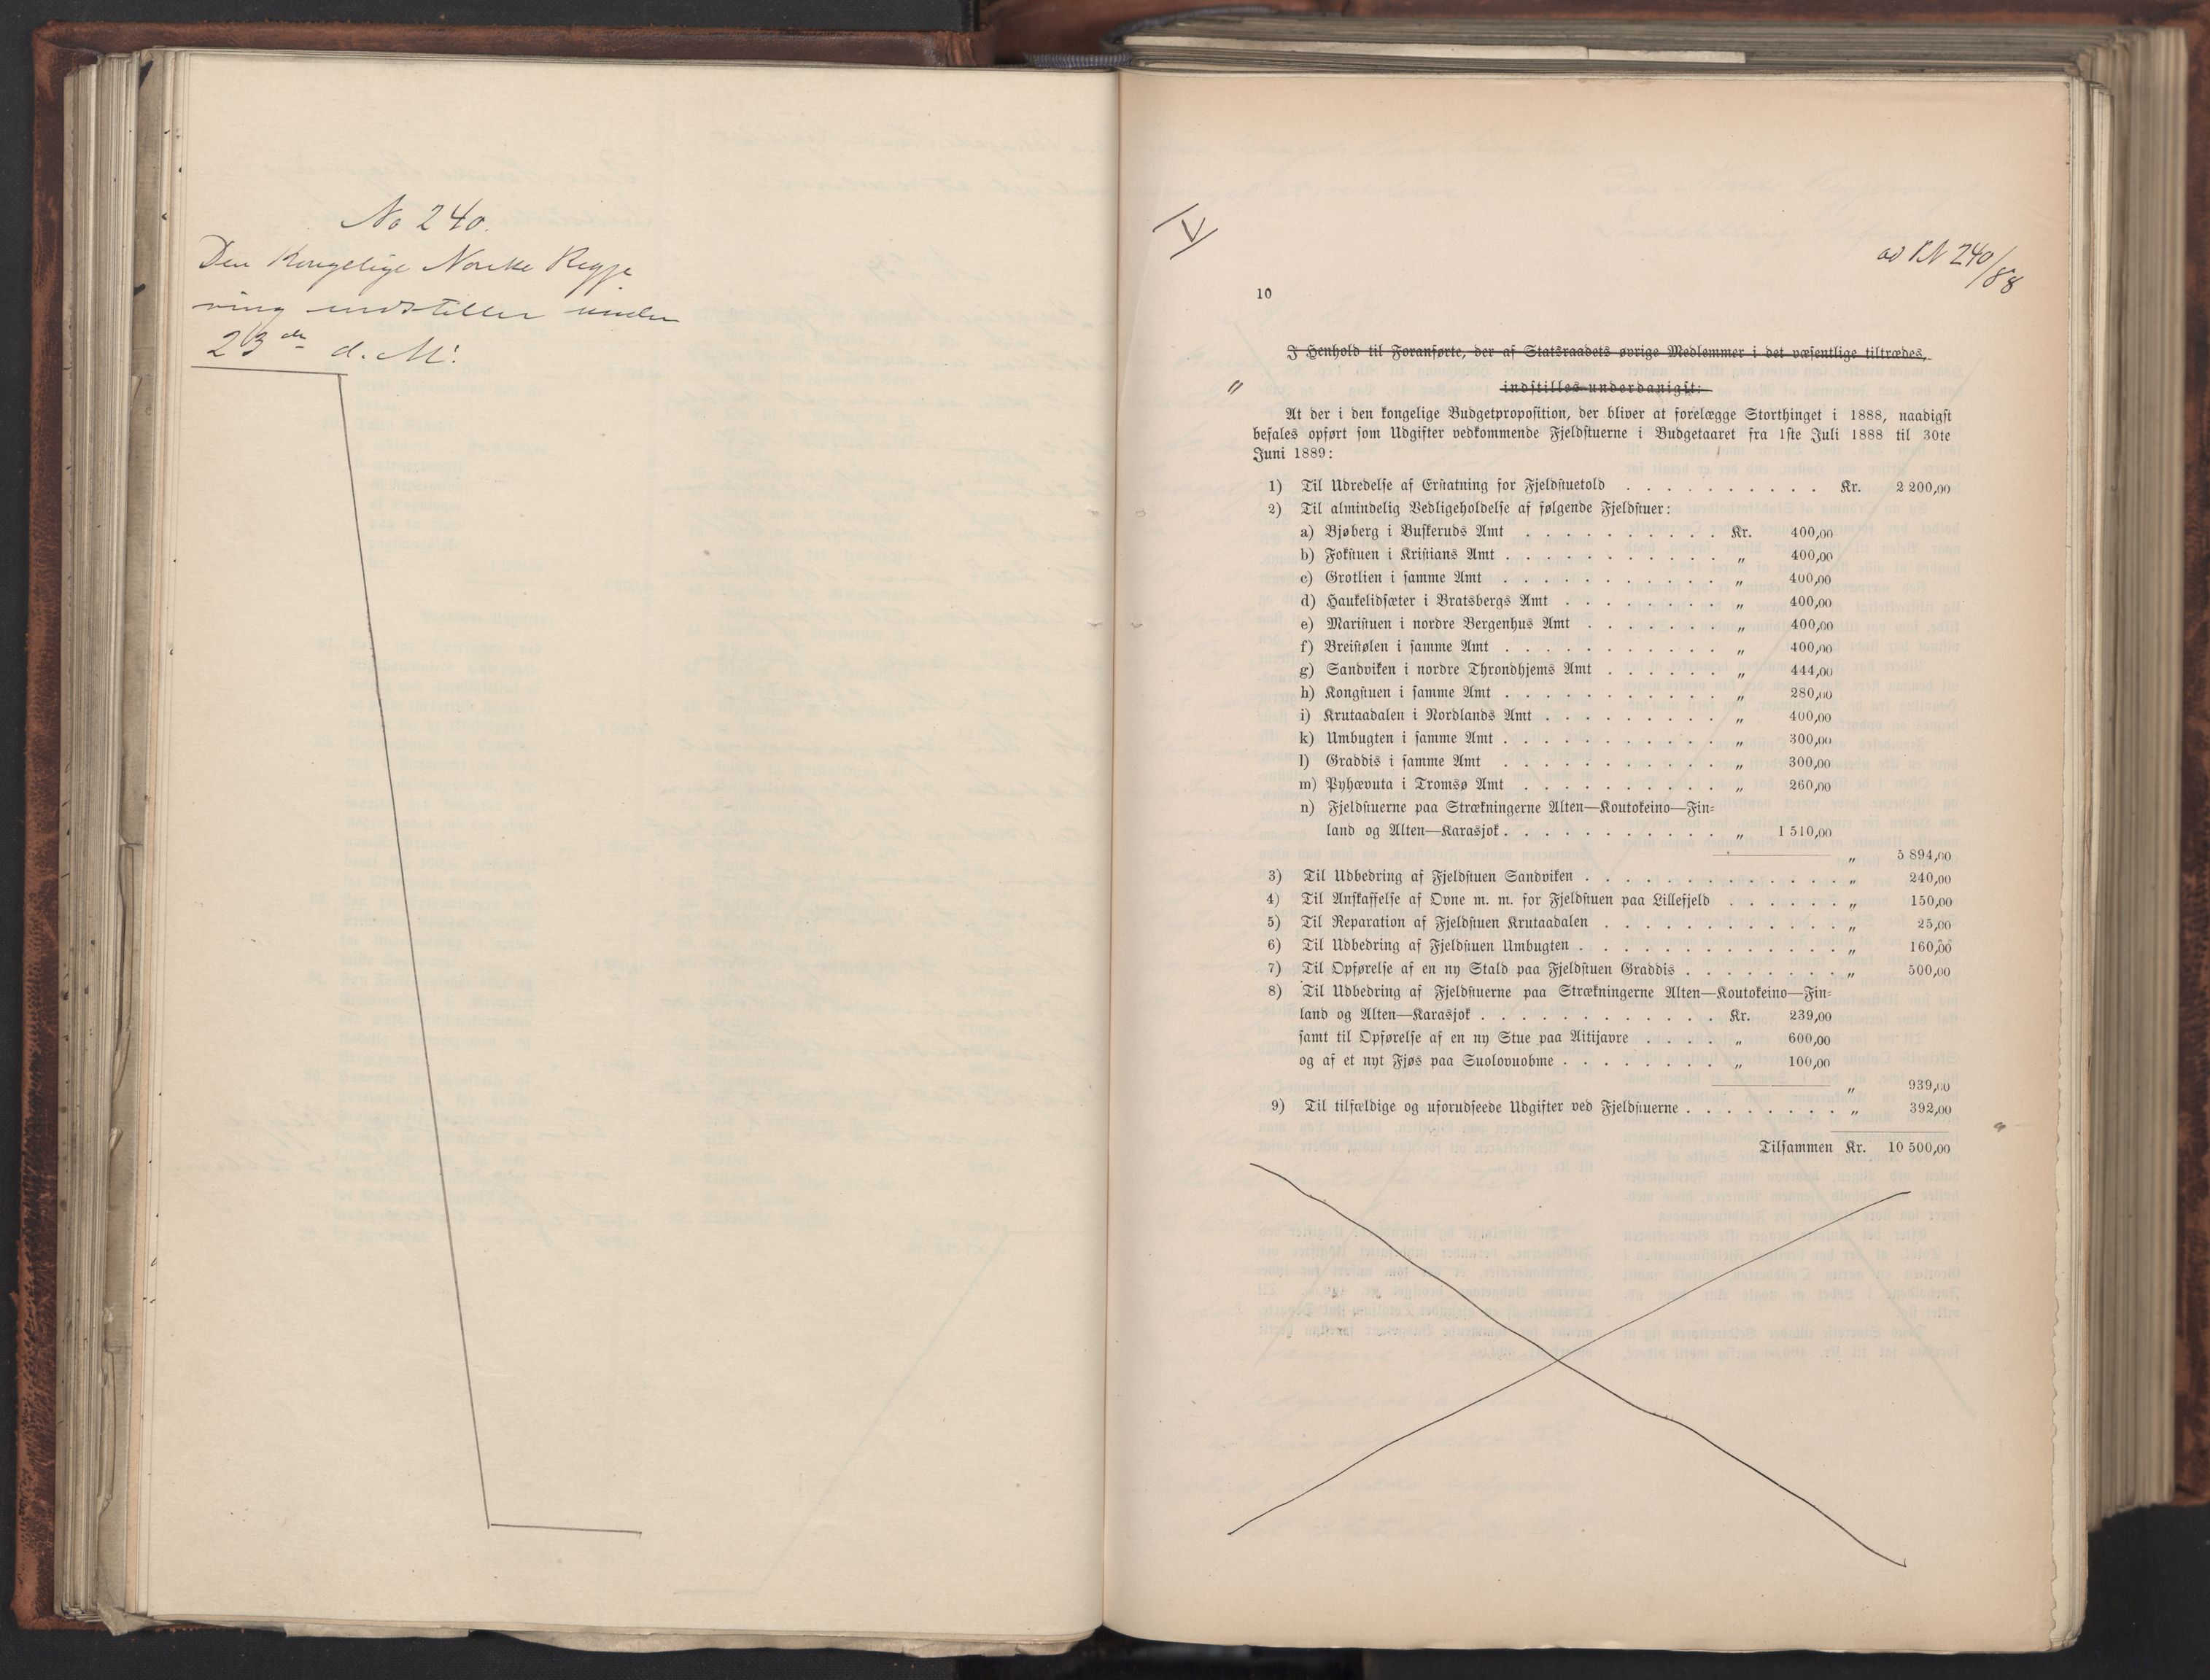 No 240.
Den Kongelige Norske Regje
ring indstiller under
23de d. M:
ad KN 240/88
10
I Henhold til Foranførte, der af Statsraadets øvrige Medlemmer i det væsentlige tiltrædes,
indstilles underdanigst:
"
At der i den kongelige Budgetproposition, der bliver at forelægge Storthinget i 1888, naadigst
befales opført som Udgifter vedkommende Fjeldstuerne i Budgetaaret fra 1ste Juli 1888 til 30te
Juni 1889:
1) Til Udredelse af Erstatning for Fjeldstuetold . . . . . . . . . . Kr. 2 200,00
2) Til almindelig Vedligeholdelse af følgende Fjeldstuer:
a) Bjøberg i Buskeruds Amt . . . . . . . . . . Kr. 400,00
b) Fokstuen i Kristians Amt . . . . . . . . . . „ 400,00
c) Grotlien i samme Amt . . . . . . . . . . . „ 400,00
d) Haukelidsæter i Bratsbergs Amt . . . . . . . . „ 400,00
e) Maristuen i nordre Bergenhus Amt . . . . . . . „ 400,00
f) Breistølen i samme Amt . . . . . . . . . . . „ 400,00
g) Sandviken i nordre Throndhjems Amt . . . . . . „ 444,00
h) Kongstuen i samme Amt . . . . . . . . . . . „ 280,00
i) Krutaadalen i Nordlands Amt . . . . . . . . . „ 400,00
k) Umbugten i samme Amt . . . . . . . . . . . „ 300,00
l) Graddis i samme Amt . . . . . . . . . . . „ 300,00
m) Pyhævuta i Tromsø Amt . . . . . . . . . . „ 260,00
n) Fjeldstuerne paa Strækningerne Alten—Koutokeino—Fin=
land og Alten—Karasjok . . . . . . . . . . . „ 1 510,00
„ 5 894,00
3) Til Udbedring af Fjeldstuen Sandviken . . . . . . . . . . . . . „ 240,00
4) Til Anskaffelse af Ovne m. m. for Fjeldstuen paa Lillefjeld . . . . . . „ 150,00
5) Til Reparation af Fjeldstuen Krutaadalen . . . . . . . . . . . . „ 25,00
6) Til Udbedring af Fjeldstuen Umbugten . . . . . . . . . . . . . „ 160,00
7) Til Opførelse af en ny Stald paa Fjeldstuen Graddis . . . . . . . . „ 500,00
8) Til Udbedring af Fjeldstuerne paa Strækningerne Alten—Koutokeino—Fin=
land og Alten—Karasjok . . . . . . . . . . . . Kr. 239,00
samt til Opførelse af en ny Stue paa Aitijavre . . . . . „ 600,00
og af et nyt Fjøs paa Suolovuobme . . . . . . . . „ 100,00
„ 939,00
9) Til tilfældige og uforudseede Udgifter ved Fjeldstuerne . . . . . . . . „ 392,00
Tilsammen Kr. 10 500,00